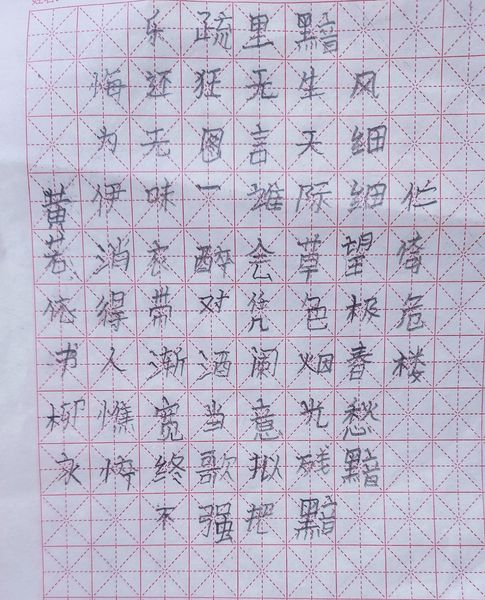 伫倚危楼
风细细望极春愁黯
黯生天际草色烟光残黯
里无言谁会凭阑意拟把
疏狂图一醉对酒当歌强
乐还无味衣带渐宽终不
悔为伊消得人憔悴
黄书柳永